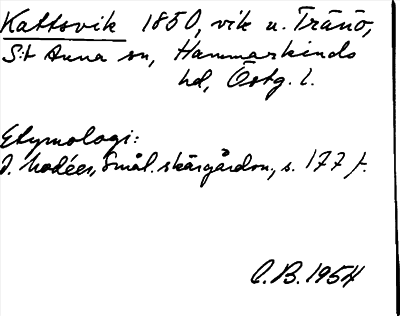 Kattsvik 1850, vik u. Tränö,
S:t Anna sn, Hammarkinds
hd, Östg. l.
Etymologi:
J. Modéer, Smål. skärgårdsn, s. 177 f.
C.B. 1954